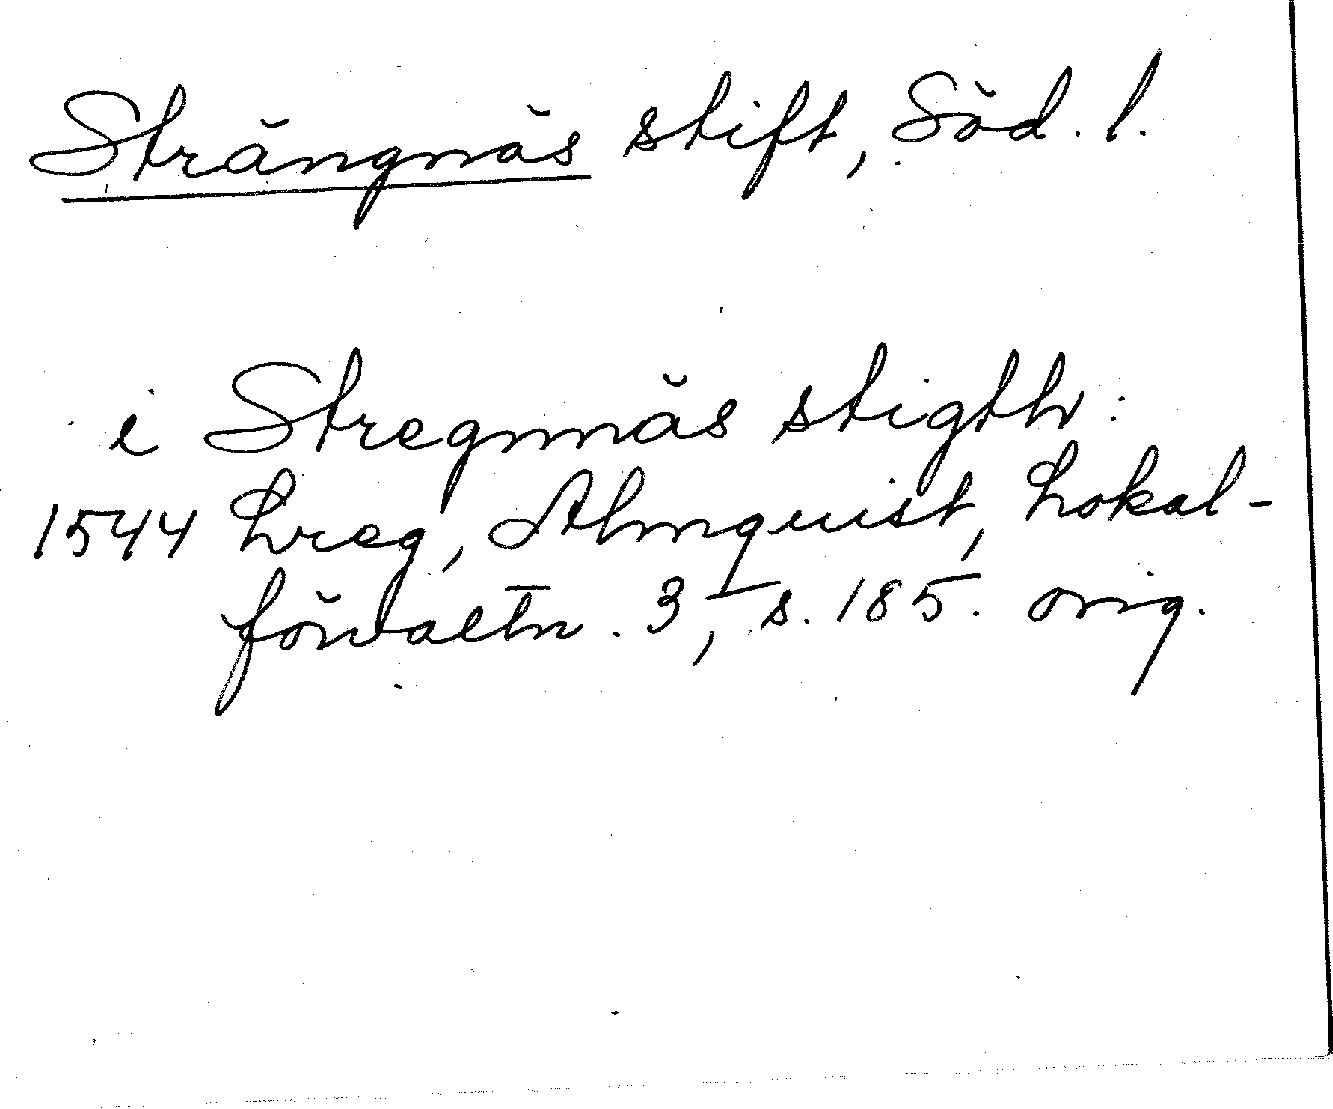 Strängnäs stift, Söd. l.
i Stregnnäs stigth:
1544 Lreg, Almquist, Lokal-
förvaltn. 3, s. 185. orig.